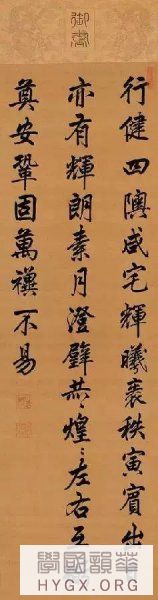 御書
行健四隩咸宅輝曦表秩寅賓出
亦有輝朗素月澄璧共煌煌左右
奠安鞏固萬禩不易
學國韻華
HYGX.ORG